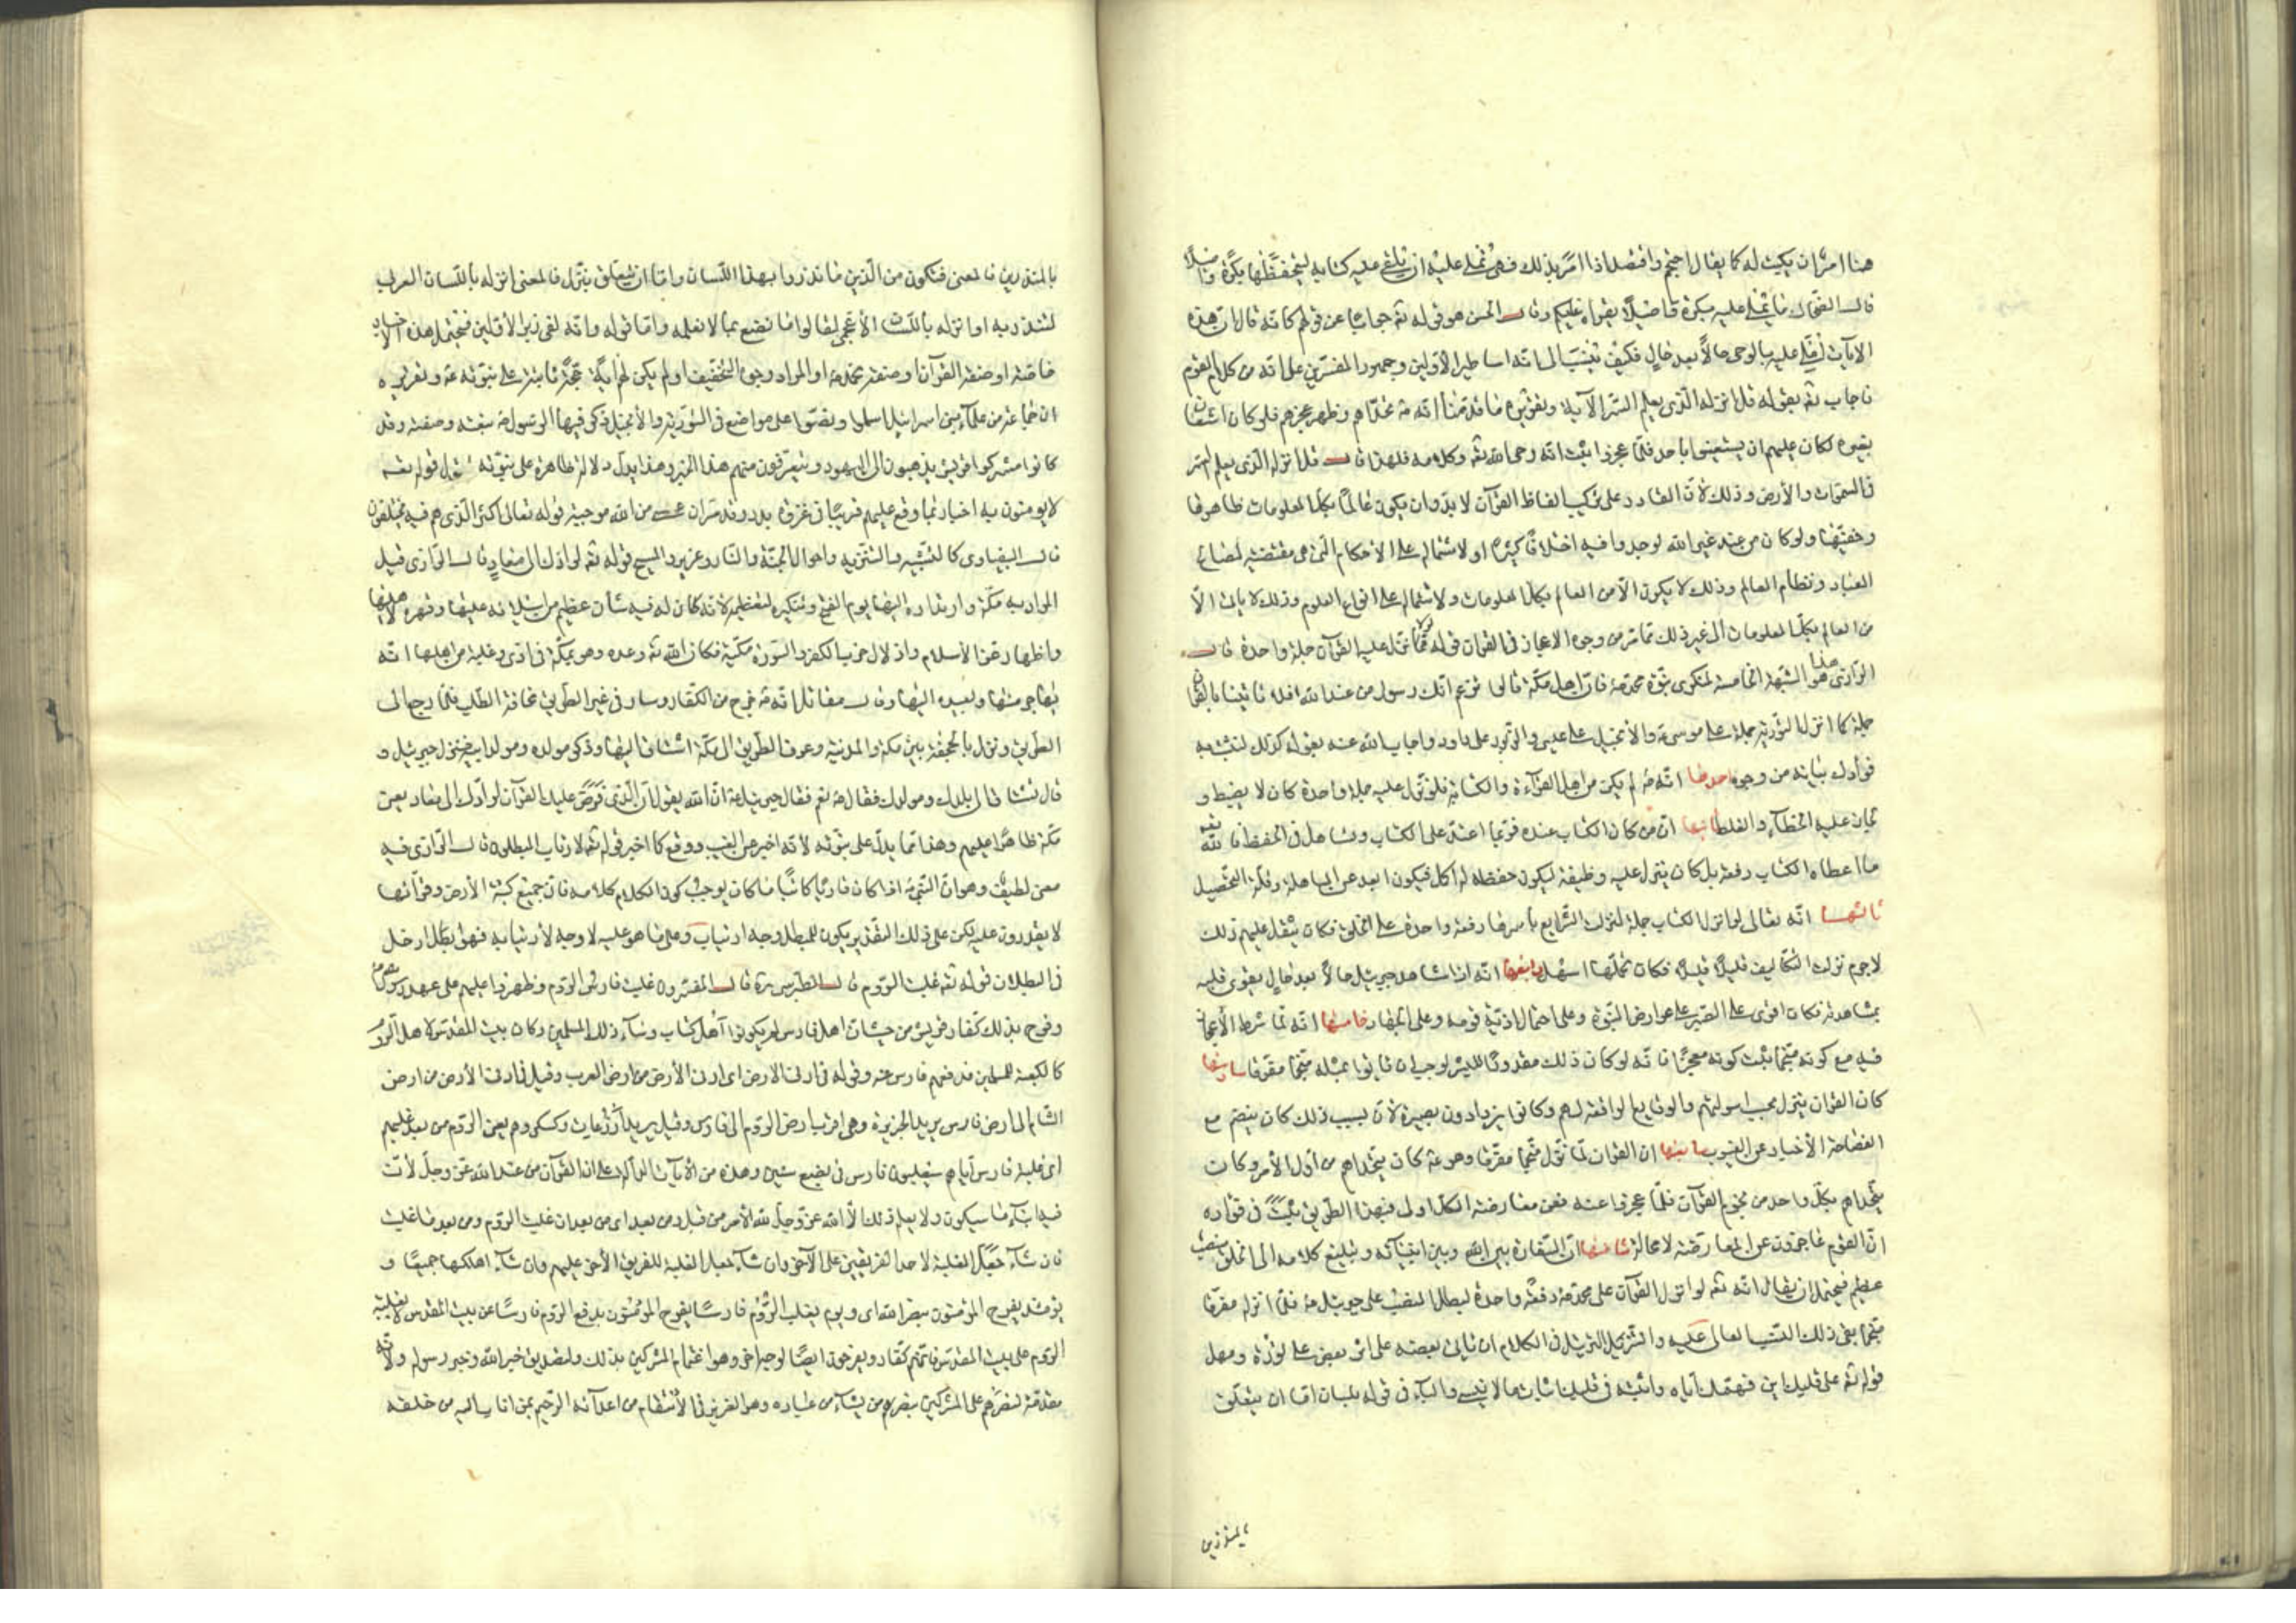 هنا امر بان يكتب له كما يقال احتجم وافتصد اذا امر بذلك فهى تملى عليه اى تلقى عليه كتابه ليتحفظها بكرة واصيلا
قال الضحاك ما يملى عليه بكرة واصيلا يقراه عليكم وقال الحسن هو قوله تع جوابا عن قولهم كانه قال ان هذه
الآيات تملى عليه بالوحى حالا بعد حال فكيف ينسب الى انه اساطير الاولين وجمهور المفسرين على انه من كلام القوم
فاجاب تع بقوله قل انزله الذى يعلم السر الآية وتقريره ما قدمنا انه ص تحداهم وظهر عجزهم فلو كان استعان
بغيره لكان عليهم ان يستعينوا باحد فلما عجزوا ثبت انه وحى الله تع وكلامه فلهذا قال قل انزله الذى يعلم السر
فى السموات والأرض وذلك لأن القادر على تركيب الفاظ القرآن لا بد وان يكون عالما بكل المعلومات ظاهرها
وخفيها ولو كان من عند غير الله لوجدوا فيه اختلافا كثيرا او لاشتماله على الاحكام التى هى مقتضية لمصالح
العباد ونظام العالم وذلك لا يكون الا من العالم بكل المعلومات ولاشتماله على انواع العلوم وذلك لا يتاتى الا
من العالم بكل المعلومات الى غير ذلك مما مر من وجوه الاعجاز فى القران قوله لولا نزل عليه القرآن جملة واحدة قال
الرازى هذا هو الشبهة الخامسة لمنكرى نبوة محمد ص فان اهل مكة قالوا تزعم انك رسول من عند الله افلا تاتينا بالقرآن
جملة كما انزل التورية جملة على موسى ع والأنجيل على عيسى والزبور على داود واجاب الله عنه بقوله كذلك لنثبت به
فؤادك بيانه من وجوه احدها انه ص لم يكن من اهل القرآءة والكتابة فلو نزل عليه جملة واحدة كان لا يضبط و
لجاز عليه الخطأ والغلط ثانيها ان من كان الكتاب عنده فربما اعتمد على الكتاب وتساهل فى الحفظ فالله تع
ما اعطاه الكتاب دفعة بل كان ينزل عليه وظيفة ليكون حفظه له اكمل فيكون ابعد عن المساهلة وقلة التحصيل
ثالثها انه تعالى لو انزل الكتاب جملة لنزلت الشرايع باسرها دفعة واحدة على الخلق فكان يثقل عليهم ذلك
لاجرم نزلت التكاليف قليلا قليلا فكان تحملها اسهل رابعها انه اذا شاهد جبريل حالا بعد حال يقوى قلبه
بمشاهدته فكان اقوى على الصبر على عوارض النبوة وعلى احتمال اذية قومه وعلى الجهاد خامسها انه لما شرط الأعجاز
فيه مع كونه منجما ثبت كونه معجزا فانه لو كان ذلك مقدورا للبشر لوجب ان ياتوا بمثله منجما مفرقا سادسها
كان القران ينزل بحسب اسولتهم والوقايع الواقعة لهم وكانوا يزدادون بصيرة لأن بسبب ذلك كان ينضم مع
الفصاحة الأخبار عن الغيوب سابعها ان القران لما نزل منجما مفرقا وهو ع كان يتحداهم من اول الأمر وكان
يتحداهم بكل واحد من نجوم القرآن فلما عجزوا عنه فعن معارضة الكل اولى فبهذا الطريق يثبت فى فؤاده
ان القوم عاجزون عن المعارضة لا محالة ثامنها ان السفارة بين الله وبين انبيائه وتبليغ كلامه الى الخلق منصب
عظيم فيحتمل ان يقال انه تع لو انزل القرآن على محمد ص دفعة واحدة لبطل المنصب على جبريل ع فلما انزله مفرقا
منجما بقى ذلك المنصب العالى عليه والترتيل فى الكلام ان ياتى بعضه على اثر بعض على تؤدة ومهل
قوله تع على قلبك اى فهمك اياه واثبته فى قلبك اثبات ما لا ينسى والباء فى قوله بلسان اما ان يتعلق
بالمنذرين
بالمنذرين فالمعنى فتكون من الذين انذروا بهذا اللسان واما ان يتعلق بنزل فالمعنى انزله باللسان العربى
لتنذر به اوانزله باللسان الأعجمى لقالوا ما نصنع بما لا نعلمه واما قوله وانه لفى زبر الأولين فيحتمل هذه الاخبار
خاصة او صفة القرآن او صفة محمد ص او المراد وجوه التخويف اولم يكن لهم آية حجة ثابتة على نبوته ع وتقريره
ان جماعة من علماء بنى اسرائيل اسلموا ونصوا على مواضع فى التورية والأنجيل ذكر فيها الرسول ص بنعته وصفته وقد
كانوا مشركوا قريش يذهبون الى اليهود ويتعرفون منهم هذا الخبر وهذا يدل دلالة ظاهرة على نبوته قوله تع
لا يومنون به اخبار بما وقع عليهم قريبا فى غزوة بدر وقد مر ان من الله موجبة قوله تعالى اكثر الذى هم فيه يختلفون
قال البيضاوى كالتشبيه والتنزيه واحوال الجنة والنار وعزير والمسيح قوله تع لرادك الى معاد قال الرازى قيل
المراد به مكة وارتداده اليها يوم الفتح وتنكيره لتعظيمه لانه كان له فيه شأن عظيم من استيلائه عليها وقهره لاهلها
واظهار عز الأسلام واذلال حزب الكفر والسورة مكية فكان الله تع وعده وهو بمكة فى اذى وغلبة من اهلها انه
يهاجر منها ويعيده اليها وقال مقاتل انه ص خرج من الكفار وسار فى غير الطريق مخافة الطلب فلما رجع الى
الطريق ونزل بالجحفة بين مكة والمدينة وعرف الطريق الى مكة اشتاق اليها وذكر مولده ومولد ابيه فنزل جبريل و
قال تشتاق الى بلدك ومولدك فقال ص نعم فقال جبريل ع ان الله يقول ان الذى فرض عليك القرآن لرادك الى معاد يعنى
مكة ظاهرا عليهم وهذا مما يدل على نبوته لأنه اخبر عن الغيب ووقع كما اخبر قوله تع لارتاب المبطلون قال الرازى فيه
معنى لطيف وهو ان النبى ص اذا كان قاريا كاتبا ما كان يوجب كون الكلام كلامه فان جميع كتبة الأرض وقرائها
لا يقدرون عليه لكن على ذلك التقدير يكون للمبطل وجه ارتياب وعلى ما هو عليه لا وجه لأرتيابه فهو ادخل
فى البطلان قوله تع غلبت الروم قال الطبرسى ره قال المفسرون غلبت فارس الروم وظهروا عليهم على عهد رسول الله ص
وفرح بذلك كفار قريش من حيث ان اهل فارس لم يكونوا اهل كتاب وساء ذلك المسلمين وكان بيت المقدس لاهل الروم
كالكعبة للمسلمين فدفعهم فارس عنه وقوله فى ادنى الارض اى ادنى الأرض من ارض العرب وقيل فى ادنى الأرض من ارض
الشام الى ارض فارس يريد الجزيرة وهى اقرب ارض الروم الى فارس وقيل يريد اذرعات وكسكر وهم يعنى الروم من بعد غلبهم
اى غلبة فارس اياهم سيغلبون فارس فى بضع سنين وهذه من الآيات الدالة على ان القرآن من عند الله عز وجل لأن
فيه انباء ما سيكون ولا يعلم ذلك الا الله عز وجل لله الأمر من قبل ومن بعد اى من بعد ان غلبت الروم ومن بعد ما غلبت
فان شاء جعل الغلبة لاحد الفريقين على الآخر وان شاء جعل الغلبة للفريق الأخر عليهم وان شاء اهلكهما جميعا و
يومئذ يفرح المؤمنون بنصر الله اى ويوم يغلب الروم فارسا يفرح المؤمنون بدفع الروم فارسا عن بيت المقدس لا بغلبة
الروم على بيت المقدس فانهم كفار ويفرحون ايضا لوجوه اخر وهو اغتمام المشركين بذلك ولتصديق خبر الله وخبر رسوله ولانه
مقدمة لنصرهم على المشركين بنصره من يشاء من عباده وهو العزيز فى الأنتقام من اعدآئه الرحيم بمن اناب اليه من خلقه